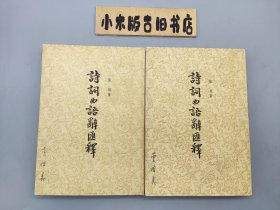 小米版古旧书店
張相著
詩詞曲語辭匯釋
張相著
詩詞曲語辭匯釋